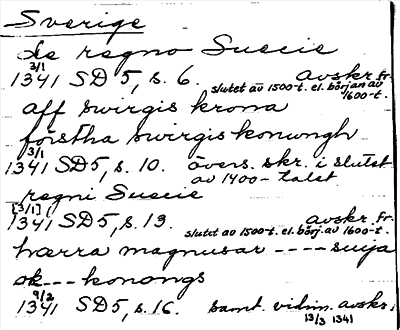 Sverige
de regno Suecie
3/1
1341 SD 5, s. 6. avskr. fr.
slutet av 1500-t. el. början av
1600-t.
aff swirgis krona
förstha swirgis konungh
3/1
1341 SD 5, s. 10. övers. skr. i slutet
av 1400-talet
regni Suecie
[3/1]
1341 SD 5, s. 13. avskr. fr.
slutet av 1500-t. el. börj. av 1600-t.
hærra magnusar ---- suija
ok --- konongs
9/2
1341 SD 5, s. 16. samt. vidim. avskr.
13/3 1341